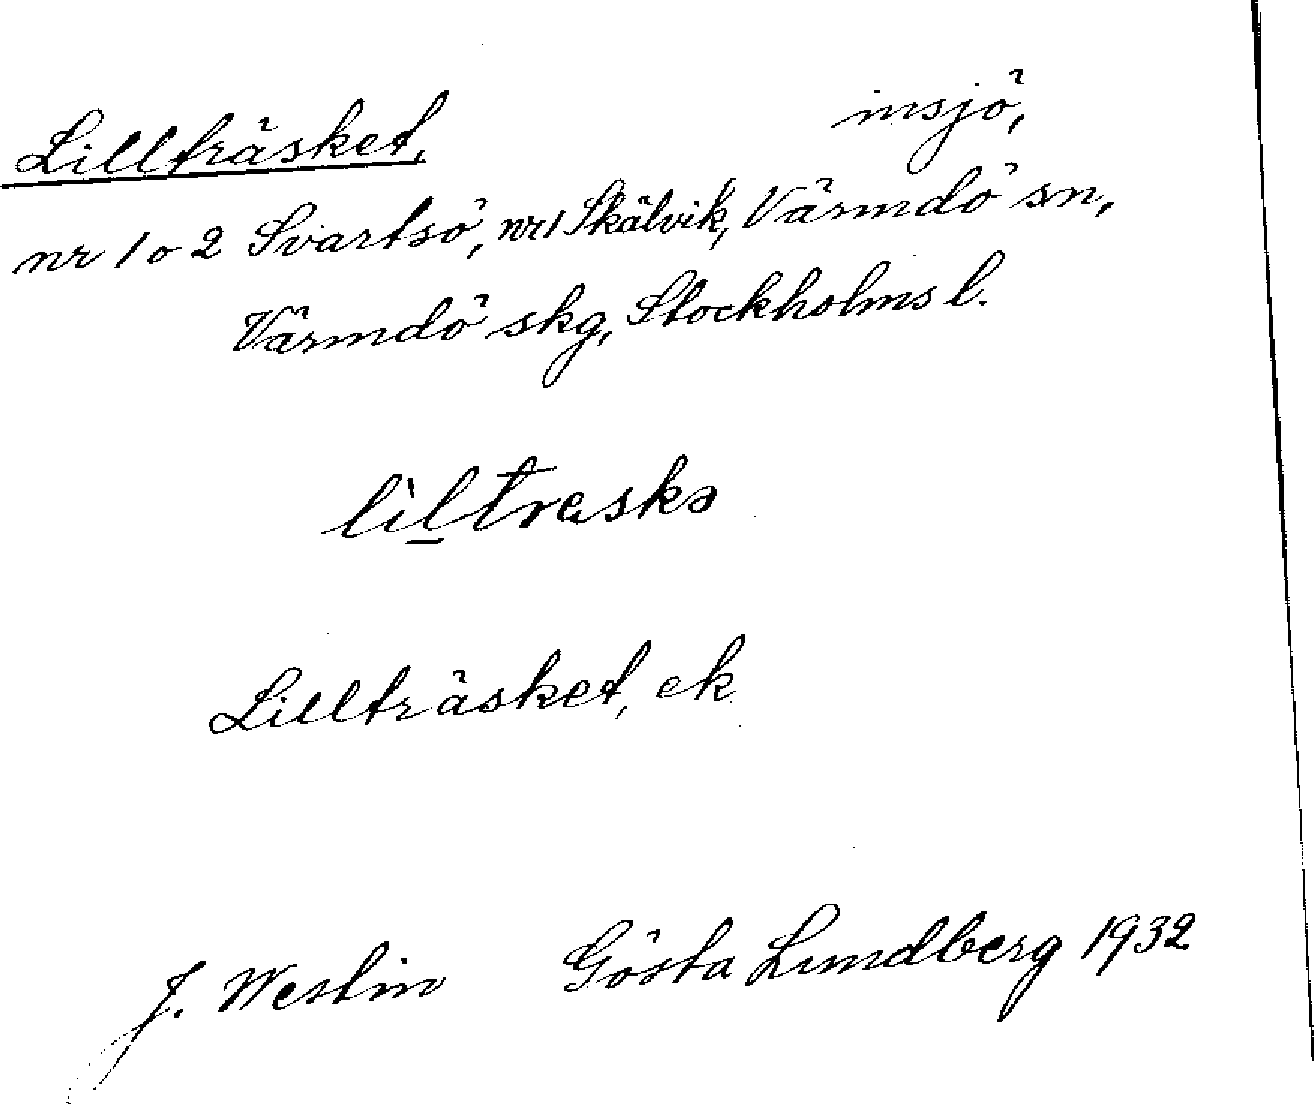 Lillträsket, insjö,
nr 1 o 2 Svartsö, nr 1 Skälvik, Värmdö sn,
Värmdö skg, Stockholms l.
lìltraskə
Lillträsket, ek.
J. Westin Gösta Lundberg 1932